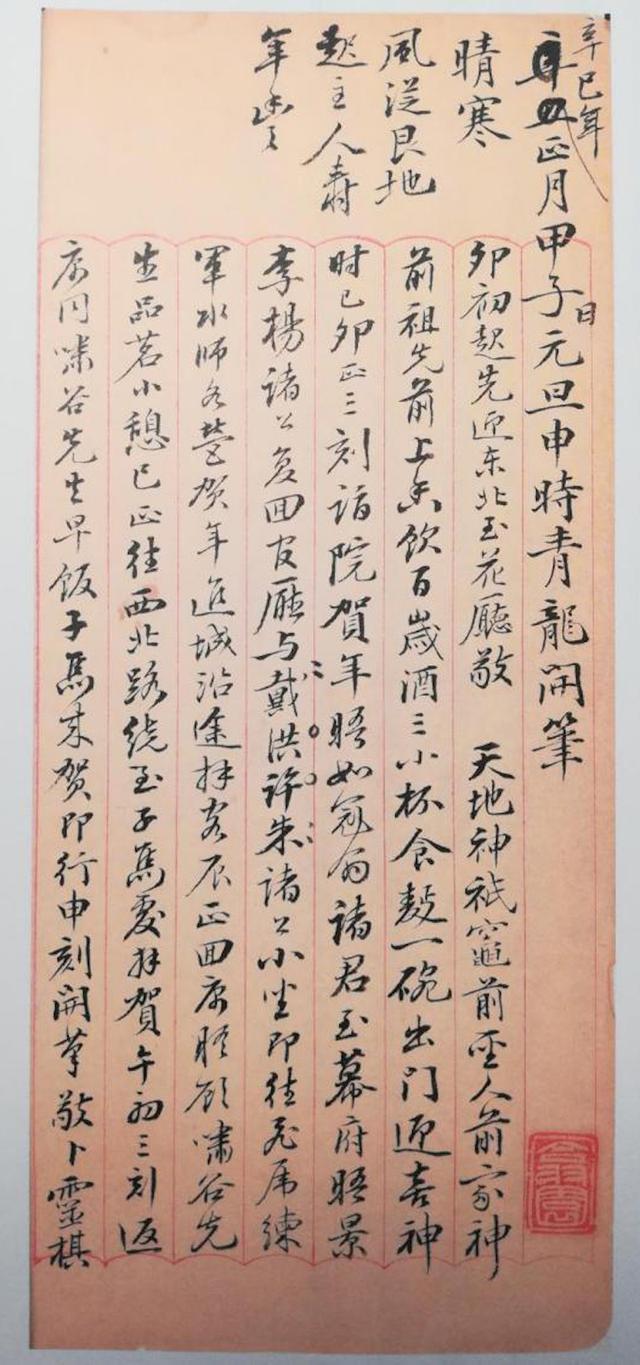 辛巳年
正月甲子日元旦申時青龍開筆
晴寒
風從艮地
起主人壽
年豐
卯初起先迎东北至花廳敬 天地神祇竈前聖人前家神
前祖先前上香飲百歲酒三小杯食麪一碗出門迎喜神
时已卯正三刻詣院賀年晤如冠翁諸君至幕府晤景
李楊諸公复回官廳与戴洪許朱諸公小坐即往虎席練
軍水师各營贺年進城沿途拜客辰正回寓晤顧嘯谷先
生品茗小憩巳正往西北路绕至子馬處拜賀午初三刻返
寓同嘯谷先生早饭子馬来贺即行申刻開筆敬卜靈棋